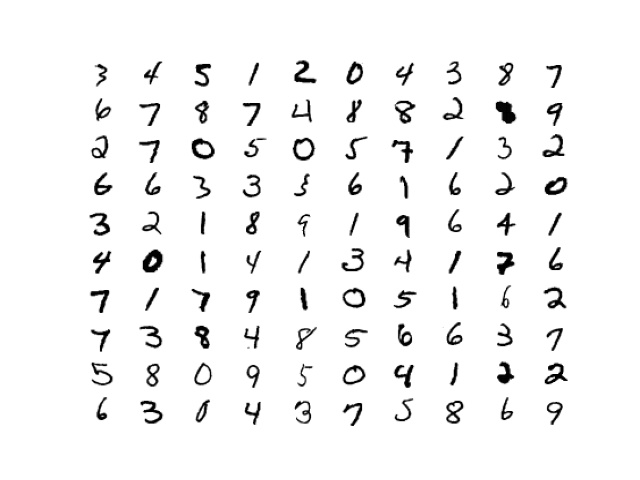 3 4 5 1 2 0 4 3 8 7
6 7 8 7 4 8 8 2 8 9
2 7 0 5 0 5 7 1 3 2
6 6 3 3 3 6 1 6 2 0
3 2 1 8 9 1 9 6 4 1
4 0 1 4 1 3 4 1 7 6
7 1 7 9 1 0 5 1 6 2
7 3 8 4 8 5 6 6 3 7
5 8 0 9 5 0 4 1 2 2
6 3 0 4 3 7 5 8 6 9